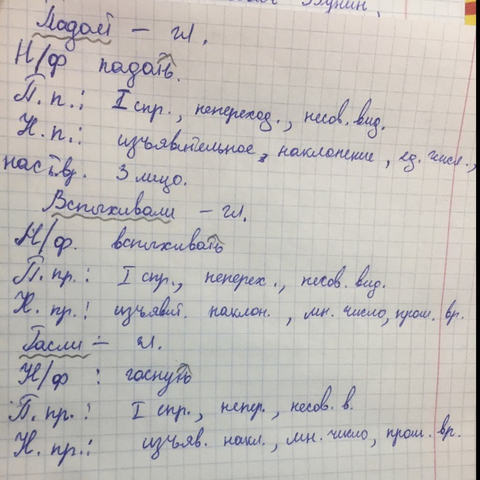 Падает – гл.
Н/ф падать.
П. п.: I спр., непереход., несов. вид.
Н. п.: изъявительное, наклонение, ед. числ.,
наст.вр. 3 лицо.
Вспыхивали – гл.
Н/ф. вспыхивать
П. пр.: I спр., неперех., несов. вид.
Н. пр.: изъявит. наклон., мн. число, прош. вр.
Гасли – гл.
Н/ф : гаснуть
П. пр.: I спр., непер., несов. в.
Н. пр.: изъяв. накл., мн. число, прош. вр.